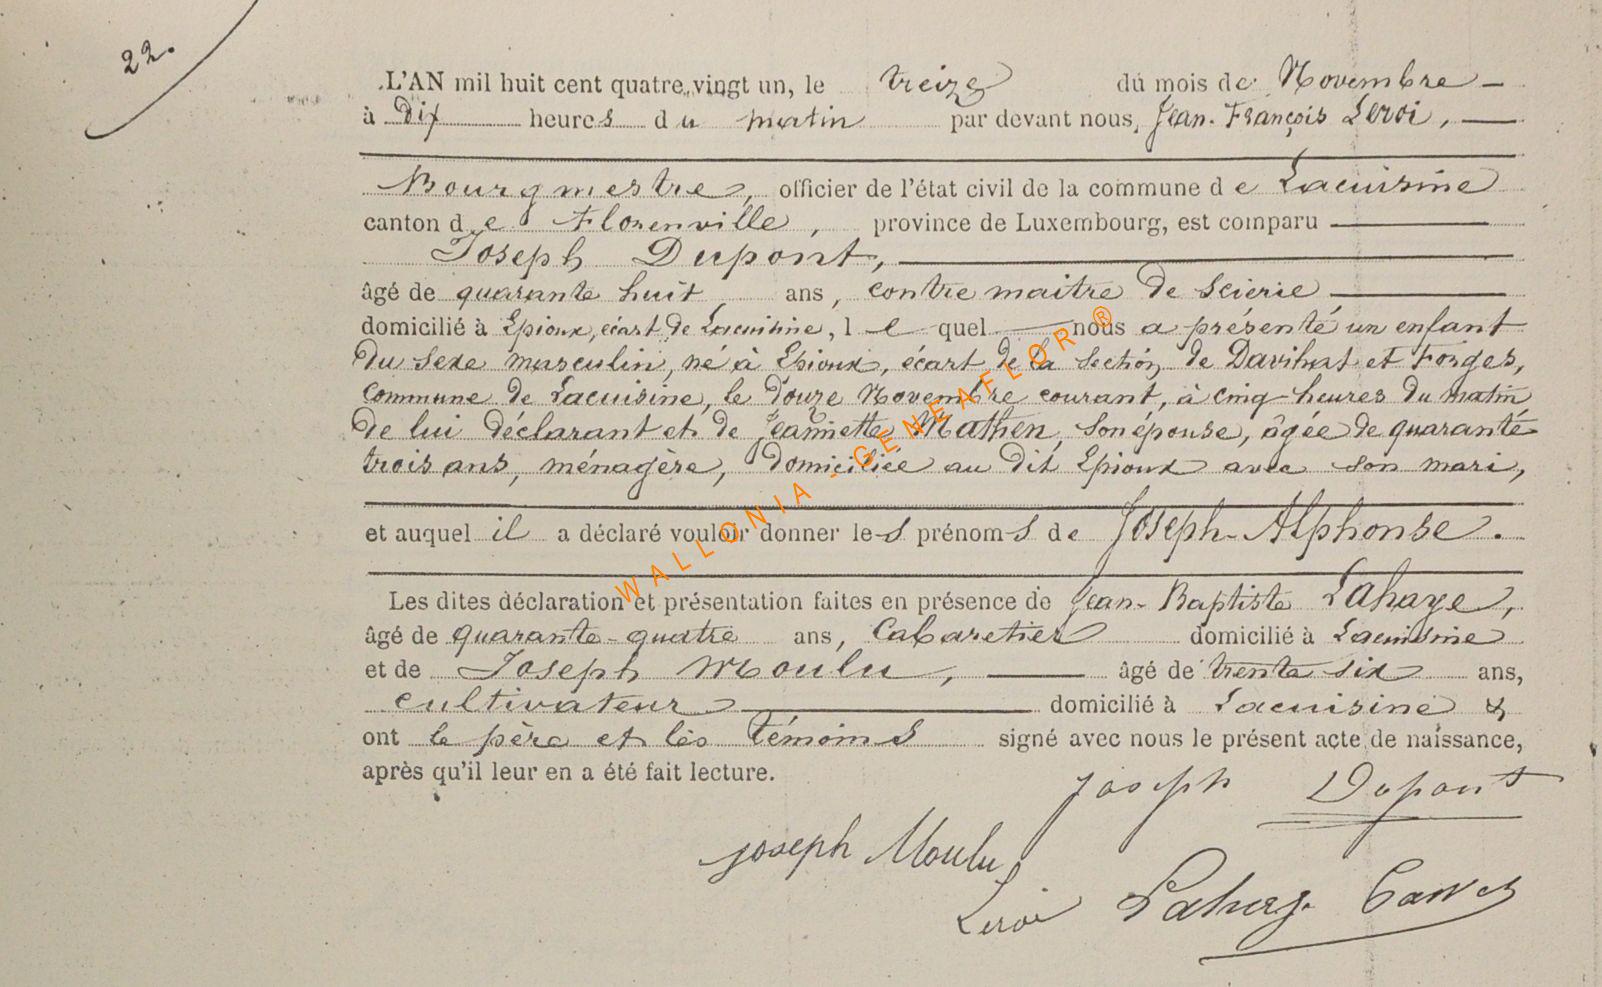 22.
L'AN mil huit cent quatre vingt un, le treize du mois de Novembre
à dix heures du matin par devant nous, Jean-François Leroi,
Bourgmestre, officier de l'état civil de la commune de Lacuisine
canton de Florenville, province de Luxembourg, est comparu
Joseph Dupont,
âgé de quarante huit ans, contre maitre de scierie
domicilié à Epioux, écart de Lacuisine, lequel nous a présenté un enfant
du sexe masculin, né à Epioux, écart de la section de Davihat et Forges,
commune de Lacuisine, le douze Novembre courant, à cinq heures du matin
de lui déclarant et de Jeannette Mathen, son épouse, âgée de quarante
trois ans, ménagère, domiciliée au dit Epioux avec son mari,
et auquel il a déclaré vouloir donner les prénoms de Joseph-Alphonse.
Les dites déclaration et présentation faites en présence de Jean-Baptiste Lahaye,
âgé de quarante-quatre ans, Cabaretier domicilié à Lacuisine
et de Joseph Moulu, âgé de trente six ans,
cultivateur domicilié à Lacuisine &
ont le père et les témoins signé avec nous le présent acte de naissance,
après qu'il leur en a été fait lecture.
Joseph Dupont
Joseph Moulu
Leroi
WALLONIA - GENEAFLOR ®